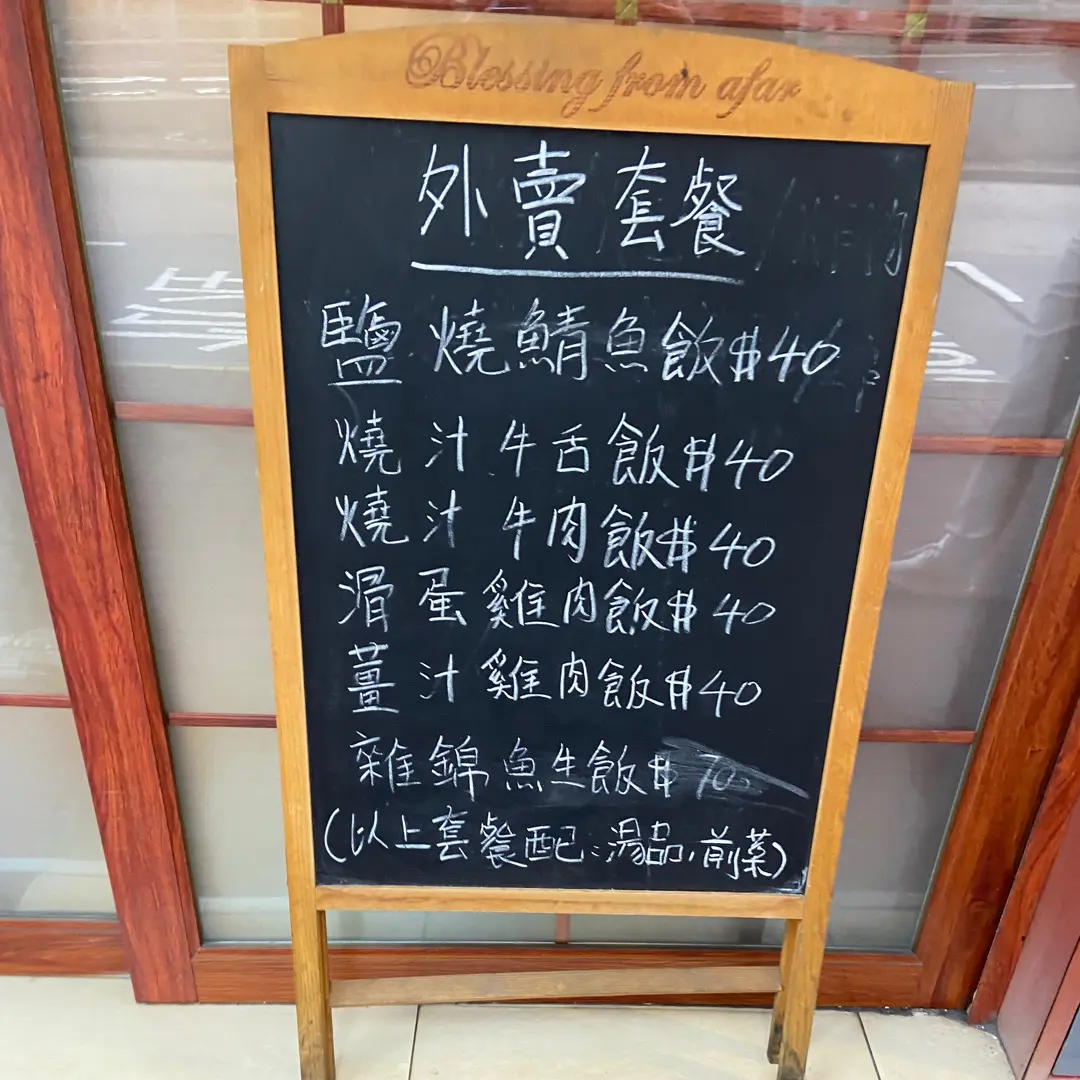 Blessing from afar
外賣套餐
鹽燒鯖魚飯$40
燒汁牛舌飯$40
燒汁牛肉飯$40
滑蛋雞肉飯$40
薑汁雞肉飯$40
雜錦魚生飯$70
(以上套餐配:湯品,前菜)